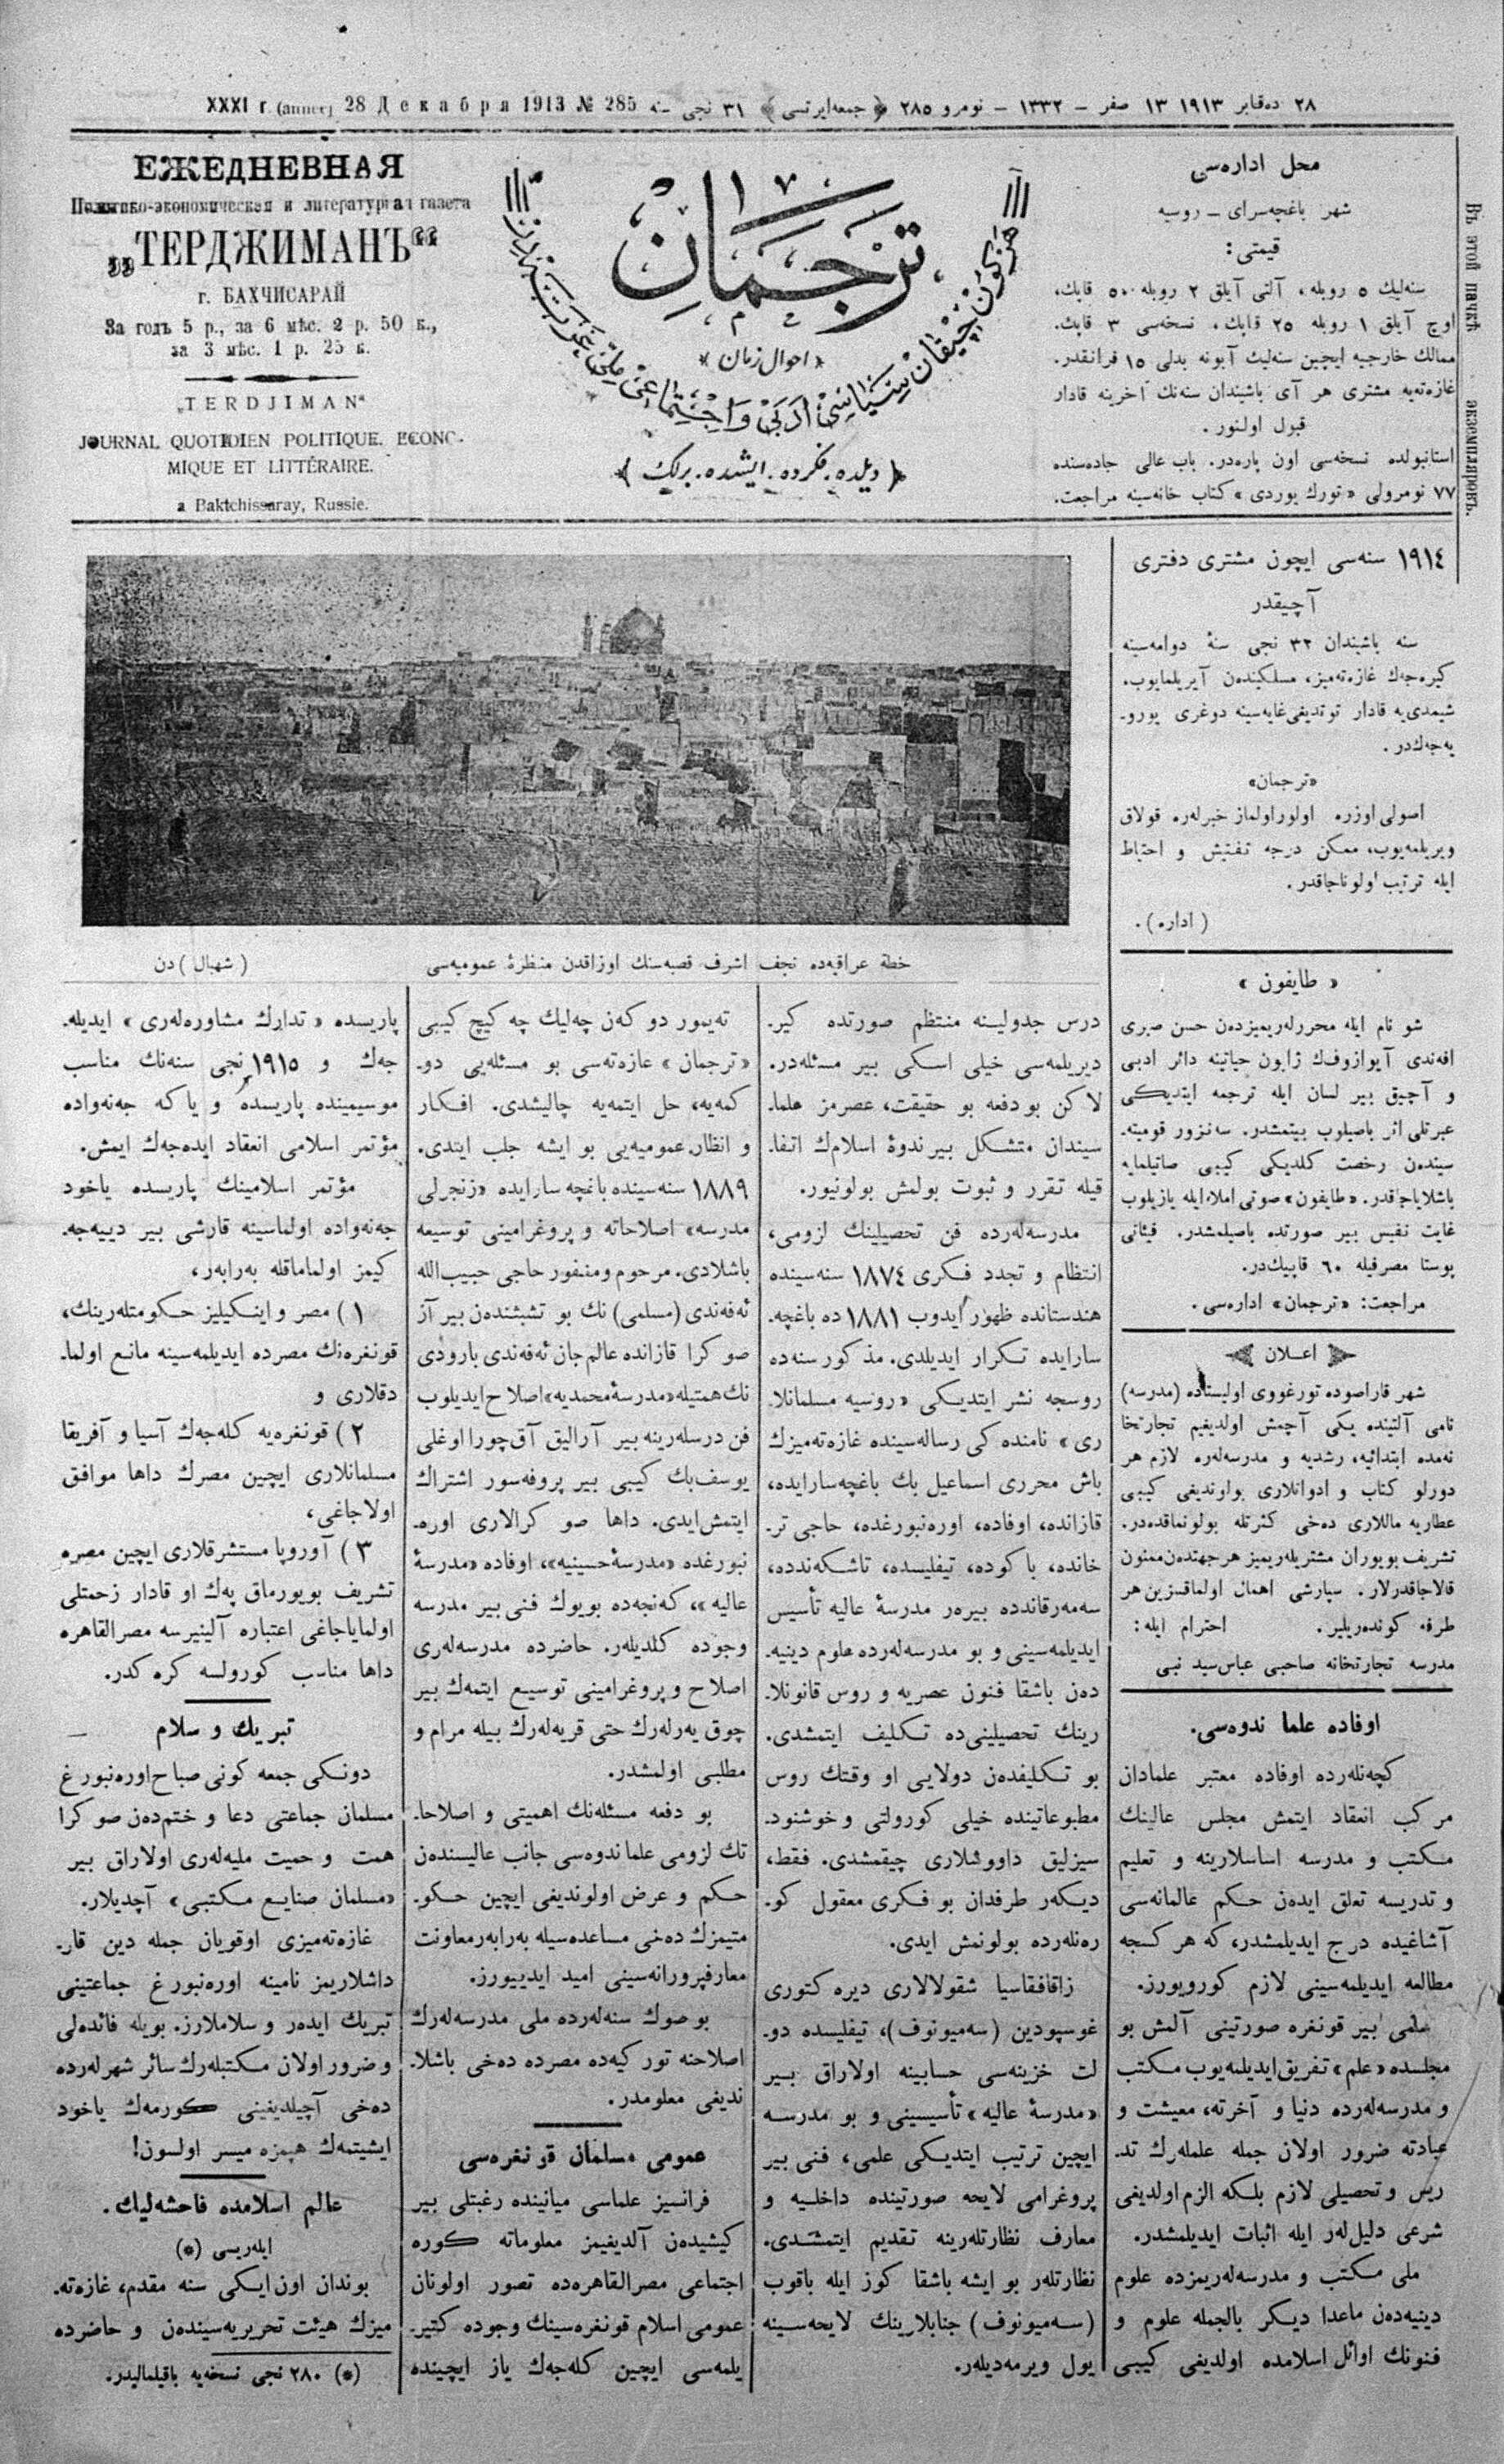 XXXI г. (année) 28 Декабря 1913 № 285
٢٨ ده‌قابر ١٩١٣ ١٣ صفر – ١٣٣٢ – نومرو ٢٨٥ ﴿ جمعه‌ايرتسی ﴾ ٣١ نجی سنه
ЕЖЕДНЕВНАЯ
Политико-экономическая и литературная газета
„ТЕРДЖИМАНЪ“
г. БАХЧИСАРАЙ
За годъ 5 р., за 6 мѣс. 2 р. 50 к.,
за 3 мѣс. 1 р. 25 к.
„TERDJIMAN“
JOURNAL QUOTIDIEN POLITIQUE. ECONO-
MIQUE ET LITTÉRAIRE.
a Baktchissaray, Russie.
ترجمان
« احوال زمان »
هر كون چيقان سياسی ادبی و اجتماعی ملی غزته‌در
﴿ ديلده . فكرده . ايشده . برلك ﴾
محل اداره‌سی
شهر باغچه‌سرای – روسيه
قيمتی :
سنه‌ليك ٥ روبله، آلتی آيلق ٢ روبله ٥٠ قاپك،
اوچ آيلق ١ روبله ٢٥ قاپك، نسخه‌سی ٣ قاپك.
ممالك خارجيه ايچين سنه‌ليك آبونه بدلی ١٥ فرانقدر.
غازه‌ته‌يه مشتری هر آی باشيندان سنه‌نك آخرينه قادار
قبول اولنور .
استانبولده نسخه‌سی اون پاره‌در. باب عالی جاده‌سنده
٧٧ نومرولی «تورك يوردی» كتاب خانه‌سينه مراجعت.
Въ этой пачкѣ экземпляровъ.
١٩١٤ سنه‌سی ايچون مشتری دفتری
آچيقدر
سنه باشيندان ٣٢ نجی سنهٔ دوامه‌سينه
كيره‌جه‌ك غازه‌ته‌ميز، مسلكيندن آيريلمايوب.
شيمدی‌يه قادار توتديغی غايه‌سينه دوغری يورو-
يه‌جه‌ك‌در .
«ترجمان»
اصولی اوزره اولور اولماز خبرلره قولاق
ويريلمه‌يوب، ممكن درجه تفتيش و احتياط
ايله ترتيب اولوناجاقدر .
( اداره ) .
« طايفون »
شو نام ايله محررلريميزدن حسن صبری
افه‌ندی آيوازوف‌ك ژاپون حياتينه دائر ادبی
و آچيق بير لسان ايله ترجمه ايتديكی
عبرتلی اثر باصيلوب بيتمشدر. سه‌نزور قوميته-
سيندن رخصت كلديكی كيبی صاتيلمايه
باشلاياجاقدر. «طايفون» صوتی املاء ايله يازيلوب
غايت نفيس بير صورتده باصيلمشدر. فيئاتی
پوستا مصرفيله ٦٠ قاپيك‌در.
مراجعت: «ترجمان» اداره‌سی.
اعلان
شهر قاراصوده تورغووی اوليستاده (مدرسه)
نامی آلتينده يكی آچمش اولديغم تجارتخا
نه‌مده ابتدائيه، رشديه و مدرسه‌لره لازم هر
دورلو كتاب و ادواتلاری بولونديغی كيبی
عطاريه ماللاری ده‌خی كثرتله بولونماقده‌در.
تشريف بويوران مشتريله‌ريميز هر جهتدن ممنون
قالاجاقدرلار. سپارشی اهمال اولماقسزين هر
طرفه كونده‌ريلير. احترام ايله :
مدرسه تجارتخانه صاحبی عباس سيد نبی
اوفاده علما ندوه‌سی.
كچه‌نله‌رده اوفاده معتبر علمادان
مركب انعقاد ايتمش مجلس عالينك
مكتب و مدرسه اساسلارينه و تعليم
و تدريسه تعلق ايدن حكم عالمانه‌سی
آشاغيده درج ايديلمشدر، كه هر كسجه
مطالعه ايديلمه‌سينی لازم كورويورز.
علمی بير قونغره صورتينی آلمش بو
مجلسده «علم» تفريق ايديلمه‌يوب مكتب
و مدرسه‌لرده دنيا و آخرته، معيشت و
عبادته ضرور اولان جمله علملرك تد-
ريس و تحصيلی لازم بلكه الزم اولديغی
شرعی دليل‌لر ايله اثبات ايديلمشدر.
ملی مكتب و مدرسه‌لريمزده علوم
دينيه‌دن ماعدا ديكر بالجمله علوم و
فنونك اوائل اسلامده اولديغی كيبی
خطهٔ عراقيه‌ده نجف اشرف قصبه‌سنك اوزاقدن منظرهٔ عموميه‌سی
( شهبال ) دن
درس جدولينه منتظم صورتده كير-
ديريلمه‌سی خيلی اسكی بير مسئله‌در.
لاكن بو دفعه بو حقيقت، عصرمز علما-
سيندان متشكل بير ندوهٔ اسلامك اتفا-
قيله تقرر و ثبوت بولمش بولونيور.
مدرسه‌لرده فن تحصيلينك لزومی،
انتظام و تجدد فكری ١٨٧٤ سنه‌سينده
هندستانده ظهور ايدوب ١٨٨١ ده باغچه-
سارايده تكرار ايديلدی. مذكور سنه‌ده
روسجه نشر ايتديكی «روسيه مسلمانلا-
ری» نامنده كی رساله‌سينده غازه‌ته‌ميزك
باش محرری اسماعيل بك باغچه‌سارايده،
قازانده، اوفاده، اوره‌نبورغده، حاجی تر-
خانده، باكوده، تيفليسده، تاشكه‌ندده،
سه‌مه‌رقاندده بيره‌ر مدرسهٔ عاليه تأسيس
ايديلمه‌سينی و بو مدرسه‌لرده علوم دينيه-
ده‌ن باشقا فنون عصريه و روس قانونلا-
رينك تحصيلينی‌ده تكليف ايتمشدی.
بو تكليفدن دولايی او وقتك روس
مطبوعاتينده خيلی كورولتی و خوشنود-
سيزليق داووشلاری چيقمشدی. فقط،
ديكه‌ر طرفدان بو فكری معقول كو-
ره‌نلرده بولونمش ايدی.
زاقافقاسيا شقولالاری ديره‌كتوری
غوسپودين (سه‌ميونوف)، تيفليسده دو-
لت خزينه‌سی حسابينه اولاراق بير
«مدرسهٔ عاليه» تأسيسينی و بو مدرسه
ايچين ترتيب ايتديكی علمی، فنی بير
پروغرامی لايحه صورتينده داخليه و
معارف نظارتلرينه تقديم ايتمشدی.
نظارتلر بو ايشه باشقا كوز ايله باقوب
(سه‌ميونوف) جنابلارينك لايحه‌سينه
يول ويرمه‌ديلر.
ته‌يمور دوكه‌ن چه‌ليك چه كيچ كيبی
«ترجمان» غازه‌ته‌سی بو مسئله‌يی دو-
كمه‌يه، حل ايتمه‌يه چاليشدی. افكار
و انظار عموميه‌يی بو ايشه جلب ايتدی.
١٨٨٩ سنه‌سينده باغچه سارايده «زنجرلی
مدرسه» اصلاحاته و پروغرامينی توسيعه
باشلادی. مرحوم و مغفور حاجی حبيب‌الله
ئه‌فه‌ندی (مسلمی) نك بو تشبثنده‌ن بير آز
صوكرا قازانده عالم جان ئه‌فه‌ندی بارودی
نك همتيله «مدرسهٔ محمديه» اصلاح ايديلوب
فن درسلرينه بير آراليق آق‌چورا اوغلی
يوسف بك كيبی بير پروفه‌سور اشتراك
ايتمش ايدی. داها صوكرالاری اوره-
نبورغده «مدرسهٔ حسينيه»، اوفاده «مدرسهٔ
عاليه»، كه‌نجه‌ده بويوك فنی بير مدرسه
وجوده كلديلر. حاضرده مدرسه‌لری
اصلاح و پروغرامينی توسيع ايتمه‌ك بير
چوق يه‌رله‌رك حتی قريه‌له‌رك بيله مرام و
مطلبی اولمشدر.
بو دفعه مسئله‌نك اهميتی و اصلاحا-
تك لزومی علما ندوه‌سی جانب عاليسنده‌ن
حكم و عرض اولونديغی ايچين حكو-
متيمزك ده‌خی مساعده‌سيله به‌رابه‌ر معاونت
معارفپرورانه‌سينی اميد ايدييورز.
بو صوك سنه‌لرده ملی مدرسه‌له‌رك
اصلاحنه توركيه‌ده مصرده ده‌خی باشلا-
نديغی معلومدر.
عمومی مسلمان قونغره‌سی
فرانسيز علماسی ميانينده رغبتلی بير
كيشيدن آلديغيمز معلوماته كوره
اجتماعی مصرالقاهره‌ده تصور اولونان
عمومی اسلام قونغره‌سينك وجوده كتير-
يلمه‌سی ايچين كله‌جه‌ك ياز ايچينده
پاريسده «تدارك مشاوره‌لری» ايديله-
جه‌ك و ١٩١٥ نجی سنه‌نك مناسب
موسيمينده پاريسده و ياكه جه‌نه‌واده
مؤتمر اسلامی انعقاد ايده‌جه‌ك ايمش.
مؤتمر اسلامينك پاريسده ياخود
جه‌نه‌واده اولماسينه قارشی بير دييه‌جه-
كيمز اولماماقله به‌رابه‌ر،
١ ) مصر و اينكيليز حكومتله‌رينك،
قونغره‌نك مصرده ايديلمه‌سينه مانع اولما-
دقلاری و
٢ ) قونغره‌يه كله‌جه‌ك آسيا و آفريقا
مسلمانلاری ايچين مصرك داها موافق
اولاجاغی،
٣ ) آوروپا مستشرقلاری ايچين مصره
تشريف بويورماق په‌ك او قادار زحمتلی
اولماياجاغی اعتباره آلينيرسه مصرالقاهره
داها مناسب كورولسه كره‌كدر.
تبريك و سلام
دونكی جمعه كونی صباح اوره‌نبورغ
مسلمان جماعتی دعا و ختمدن صوكرا
همت و حميت مليه‌لری اولاراق بير
«مسلمان صنايع مكتبی» آچديلار.
غازه‌ته‌ميزی اوقويان جمله دين قار-
داشلاريمز نامينه اوره‌نبورغ جماعتينی
تبريك ايده‌ر و سلاملارز. بويله فائده‌لی
و ضرور اولان مكتبله‌رك سائر شهرله‌رده
ده‌خی آچيلديغينی كورمه‌ك ياخود
ايشيتمه‌ك هپمزه ميسر اولسون!
عالم اسلامده فاحشه‌ليك.
ايله‌ريسی (*)
بوندان اون ايكی سنه مقدم، غازه‌ته-
ميزك هيئت تحريريه‌سيندن و حاضرده
(*) ٢٨٠ نجی نسخه‌يه باقيلماليدر.